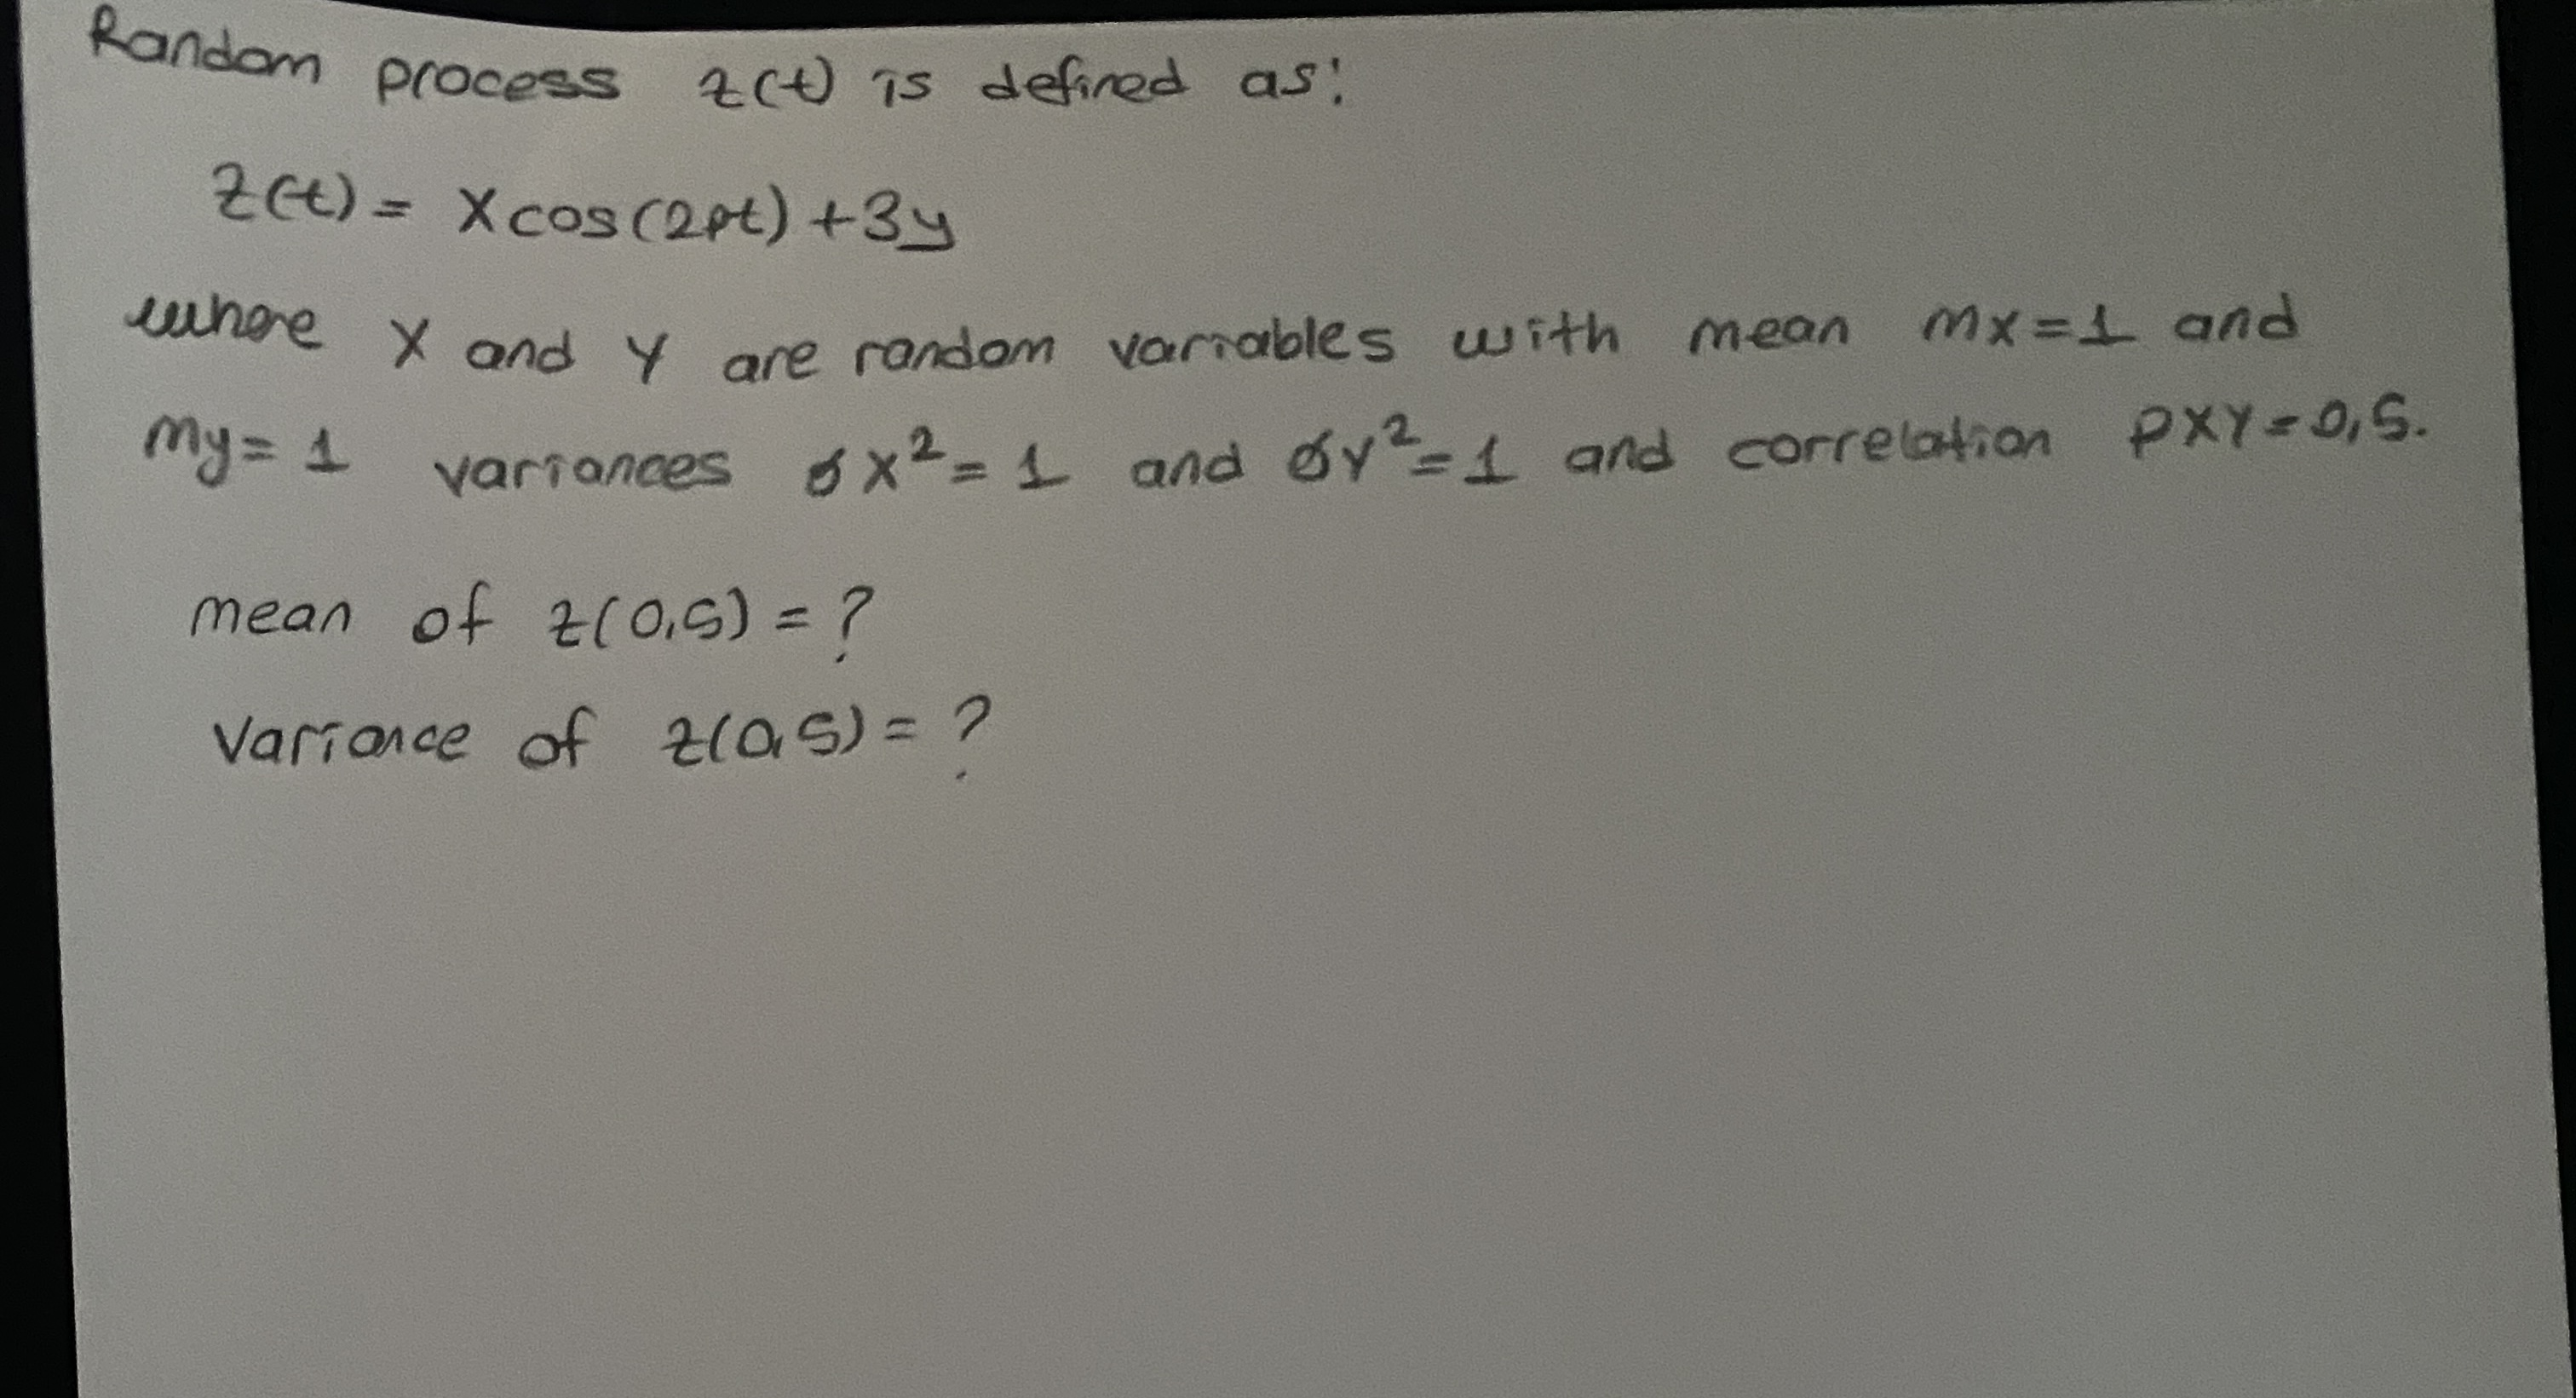 Random process z(t) is defined as:
z(t) = Xcos(2pt) + 3y
where X and Y are random variables with mean mx = 1 and
my = 1 variances σx² = 1 and σY² = 1 and correlation PXY = 0,5.
mean of z(0,5) = ?
Variance of z(0,5) = ?